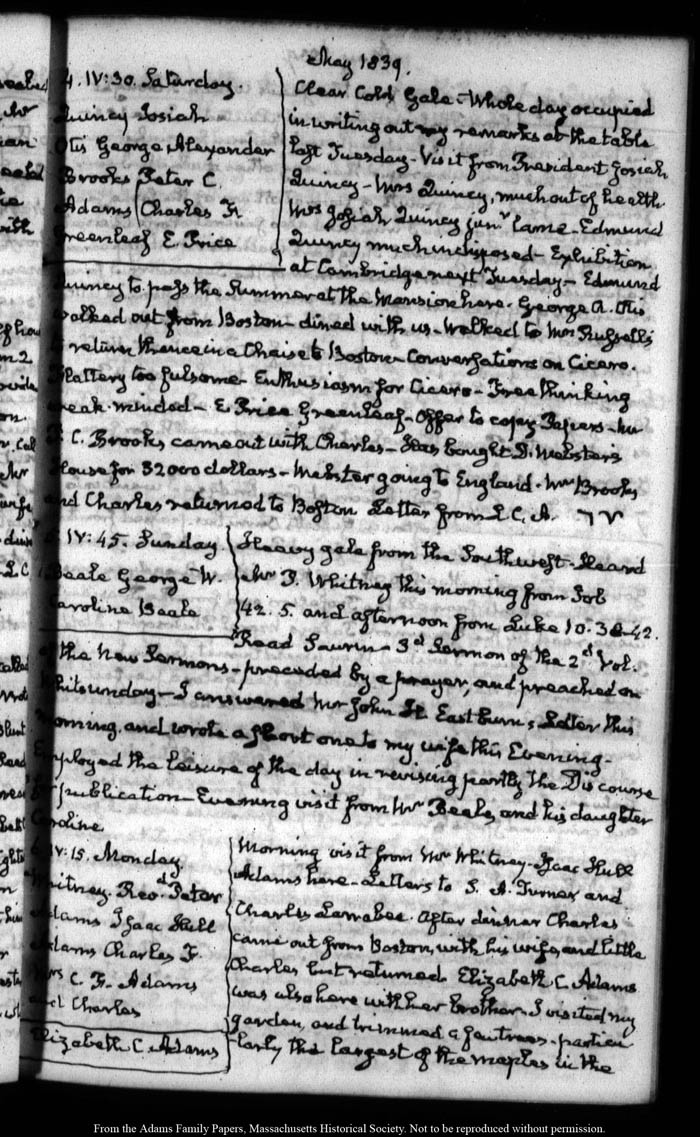 May 1839.
4. IV:30. Saturday.
Quincy Josiah
Otis George Alexander
Brooks Peter C.
Adams Charles F.
Greenleaf E. Price
Clear Cold Gale. Whole day occupied
in writing out my remarks at the table
last Tuesday. Visit from President Josiah
Quincy - Mrs Quincy, much out of health
Mrs Josiah Quincy junr. lame - Edmund
Quincy much indisposed - Exhibition
at Cambridge next Tuesday - Edmund
Quincy to pass the Summer at the Mansion here. George A. Otis
walked out from Boston - dined with us - walked to Mrs Russell's
to return thence in a Chaise to Boston - Conversations on Cicero.
Flattery too fulsome - Enthusiasm for Cicero - Free thinking
weak-minded - E. Price Greenleaf - Offer to copy Papers - Mr
P. C. Brooks came out with Charles - Has bought D. Webster's
House for 32000 dollars - Webster going to England. Mr Brooks
and Charles returned to Boston Letter from L. C. A.
5. IV:45. Sunday.
Beale George W.
Caroline Beale
Heavy gale from the Southwest. Heard
Mr P. Whitney this morning from Job
42. 5. and afternoon from Luke 10. 38-42.
Read Saurin - 3d Sermon of the 2d Vol.
of the New Sermons - preceded by a prayer, and preached on
Whitsunday - I answered Mr John H. Eastburn's Letter this
morning, and wrote a short one to my wife this Evening -
Employed the leisure of the day in revising partly the Discourse
for publication - Evening visit from Mr Beale, and his daughter
Caroline
6. IV:15. Monday.
Whitney. Revd. Peter
Adams Isaac Hull
Adams Charles F.
Mrs C. F. Adams
and Charles
Elizabeth C. Adams
Morning visit from Mr Whitney. Isaac Hull
Adams here - Letters to S. A. Turner and
Charles Larrabee. After dinner Charles
came out from Boston, with his wife, and little
Charles but returned. Elizabeth C. Adams
was also here with her brother. I visited my
garden, and trimmed a few trees - particu
larly the largest of the maples in the
From the Adams Family Papers, Massachusetts Historical Society. Not to be reproduced without permission.